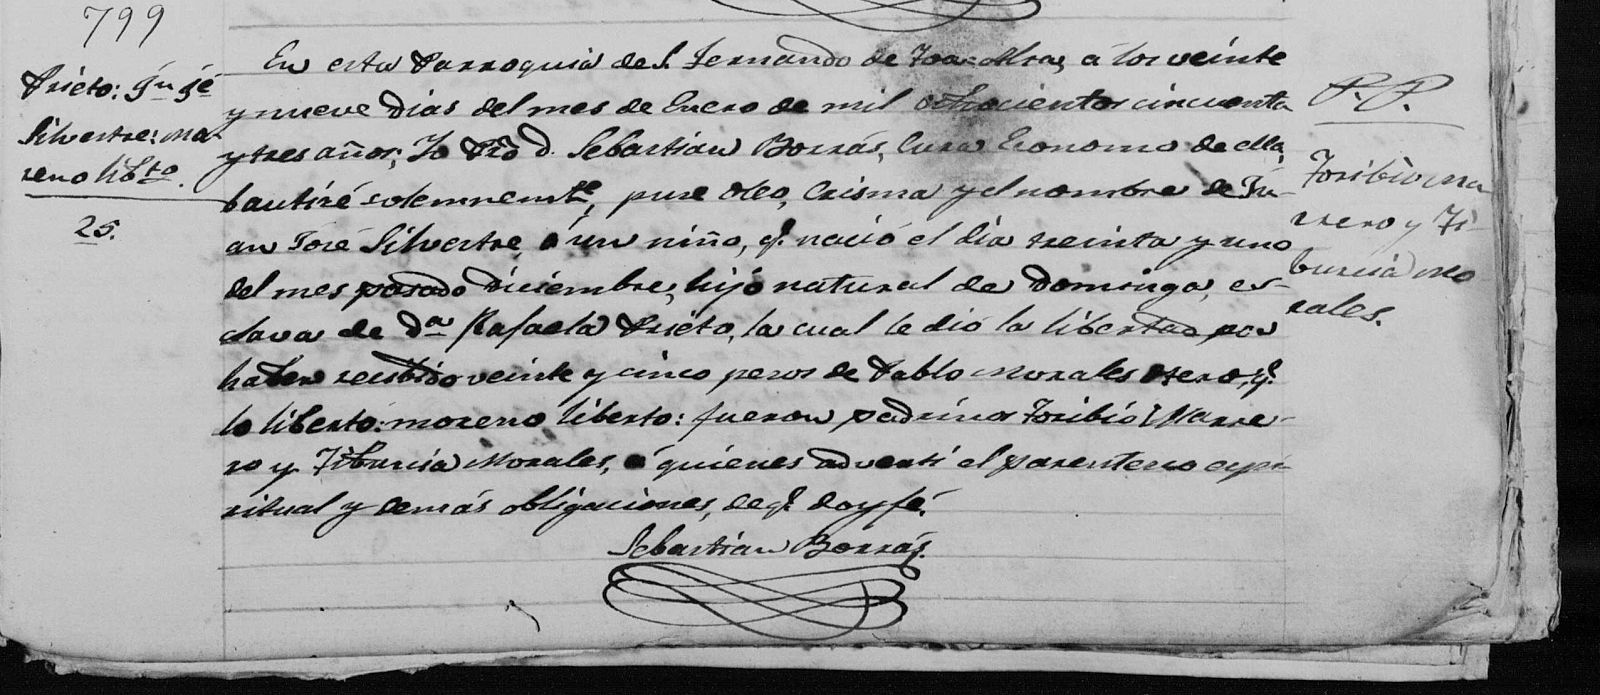 799
Prieto: Jn Jé
Silvestre: Mo-
reno libto.
25.
En esta Parroquia de S. Fernando de Toa-alta, a los veinte
y nueve dias del mes de Enero de mil ochocientos cincuenta
y tres años; Yo Pro D. Sebastian Borrás, Cura Economo de ella,
bautizé solemnemte, puse oleo, Crisma y el nombre de Ju-
an José Silvestre, á un niño, q. nació el dia treinta y uno
del mes pasado diciembre, hijo natural de Dominga, es-
clava de Da Rafaela Prieto, la cual le dió la libertad por
haber recibido veinte y cinco pesos de Pablo Morales, q.
lo liberto: moreno liberto: fueron padrinos Toribio Marre-
ro y Tiburcia Morales, á quienes advertí el parentesco espi-
ritual y demás obligaciones, de q. doy fé.
Sebastian Borrás.
P. P.
Toribio Ma-
rrero y Ti-
burcia Mo
rales.